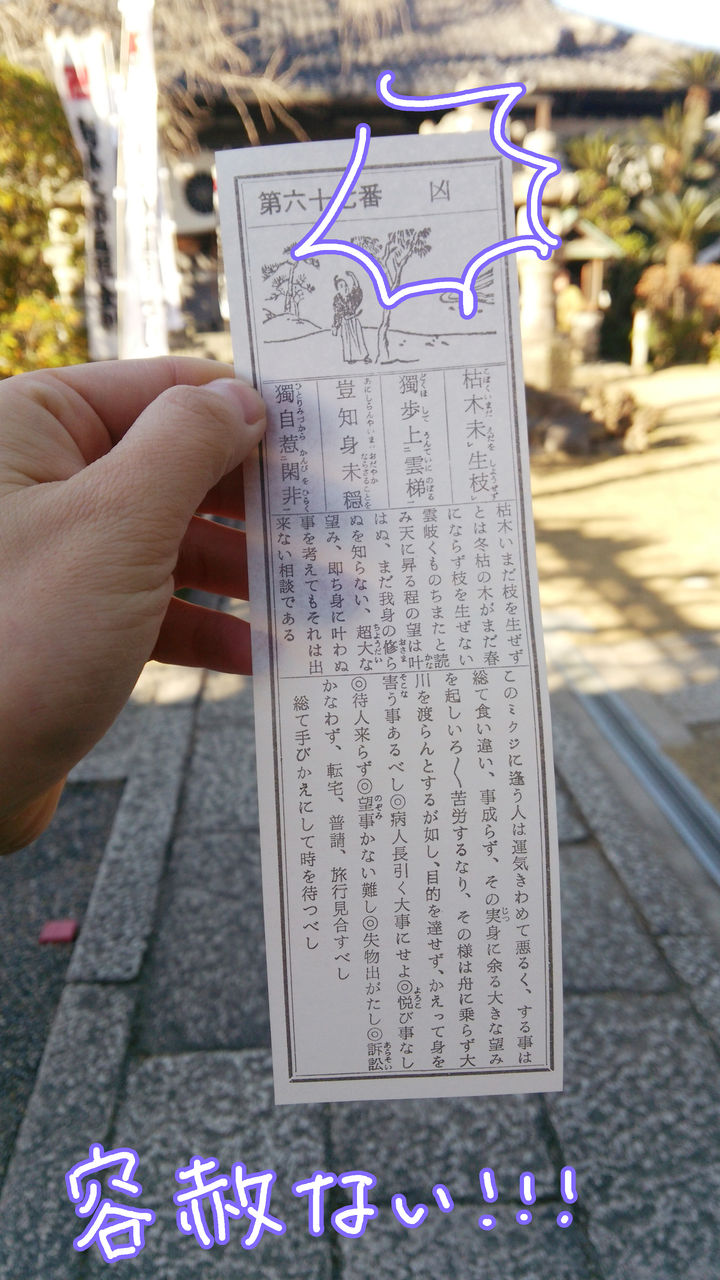 第六十七番 凶
枯木未生枝
獨歩上雲梯
豈知身未穏
獨自惹閑非
枯木いまだ枝を生ぜず
とは冬枯の木がまだ春
にならず枝を生ぜない
雲岐くものちまたと読
み天に昇る程の望は叶
はぬ、まだ我身の修ら
ぬを知らない、超大な
望み、即ち身に叶わぬ
事を考えてもそれは出
来ない相談である
このミクジに逢う人は運気きわめて悪るく、する事は
総て食い違い、事成らず、その実身に余る大きな望み
を起しいろ〳〵苦労するなり、その様は舟に乗らず大
川を渡らんとするが如し、目的を達せず、かえって身を
害う事あるべし◎病人長引く大事にせよ◎悦び事なし
◎待人来らず◎望事かない難し◎失物出がたし◎訴訟
かなわず、転宅、普請、旅行見合すべし
総て手びかえにして時を待つべし
容赦ない!!!